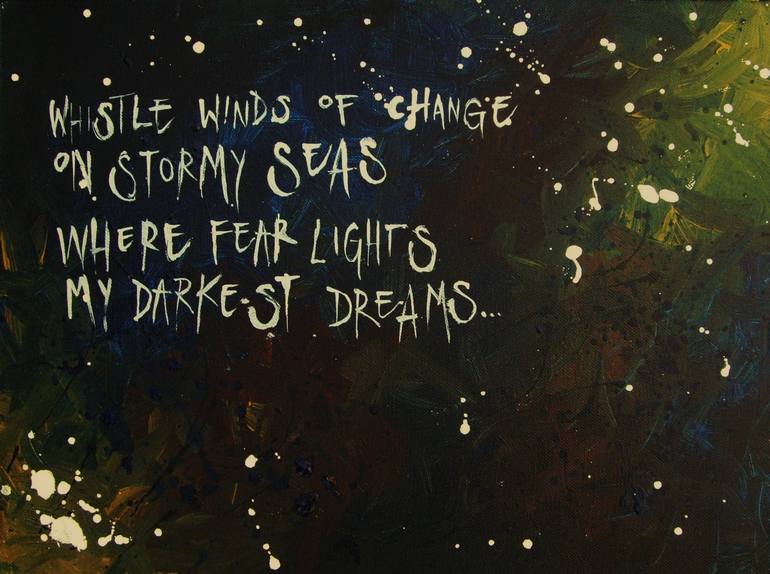 WHISTLE WINDS OF CHANGE
ON STORMY SEAS
WHERE FEAR LIGHTS
MY DARKEST DREAMS...